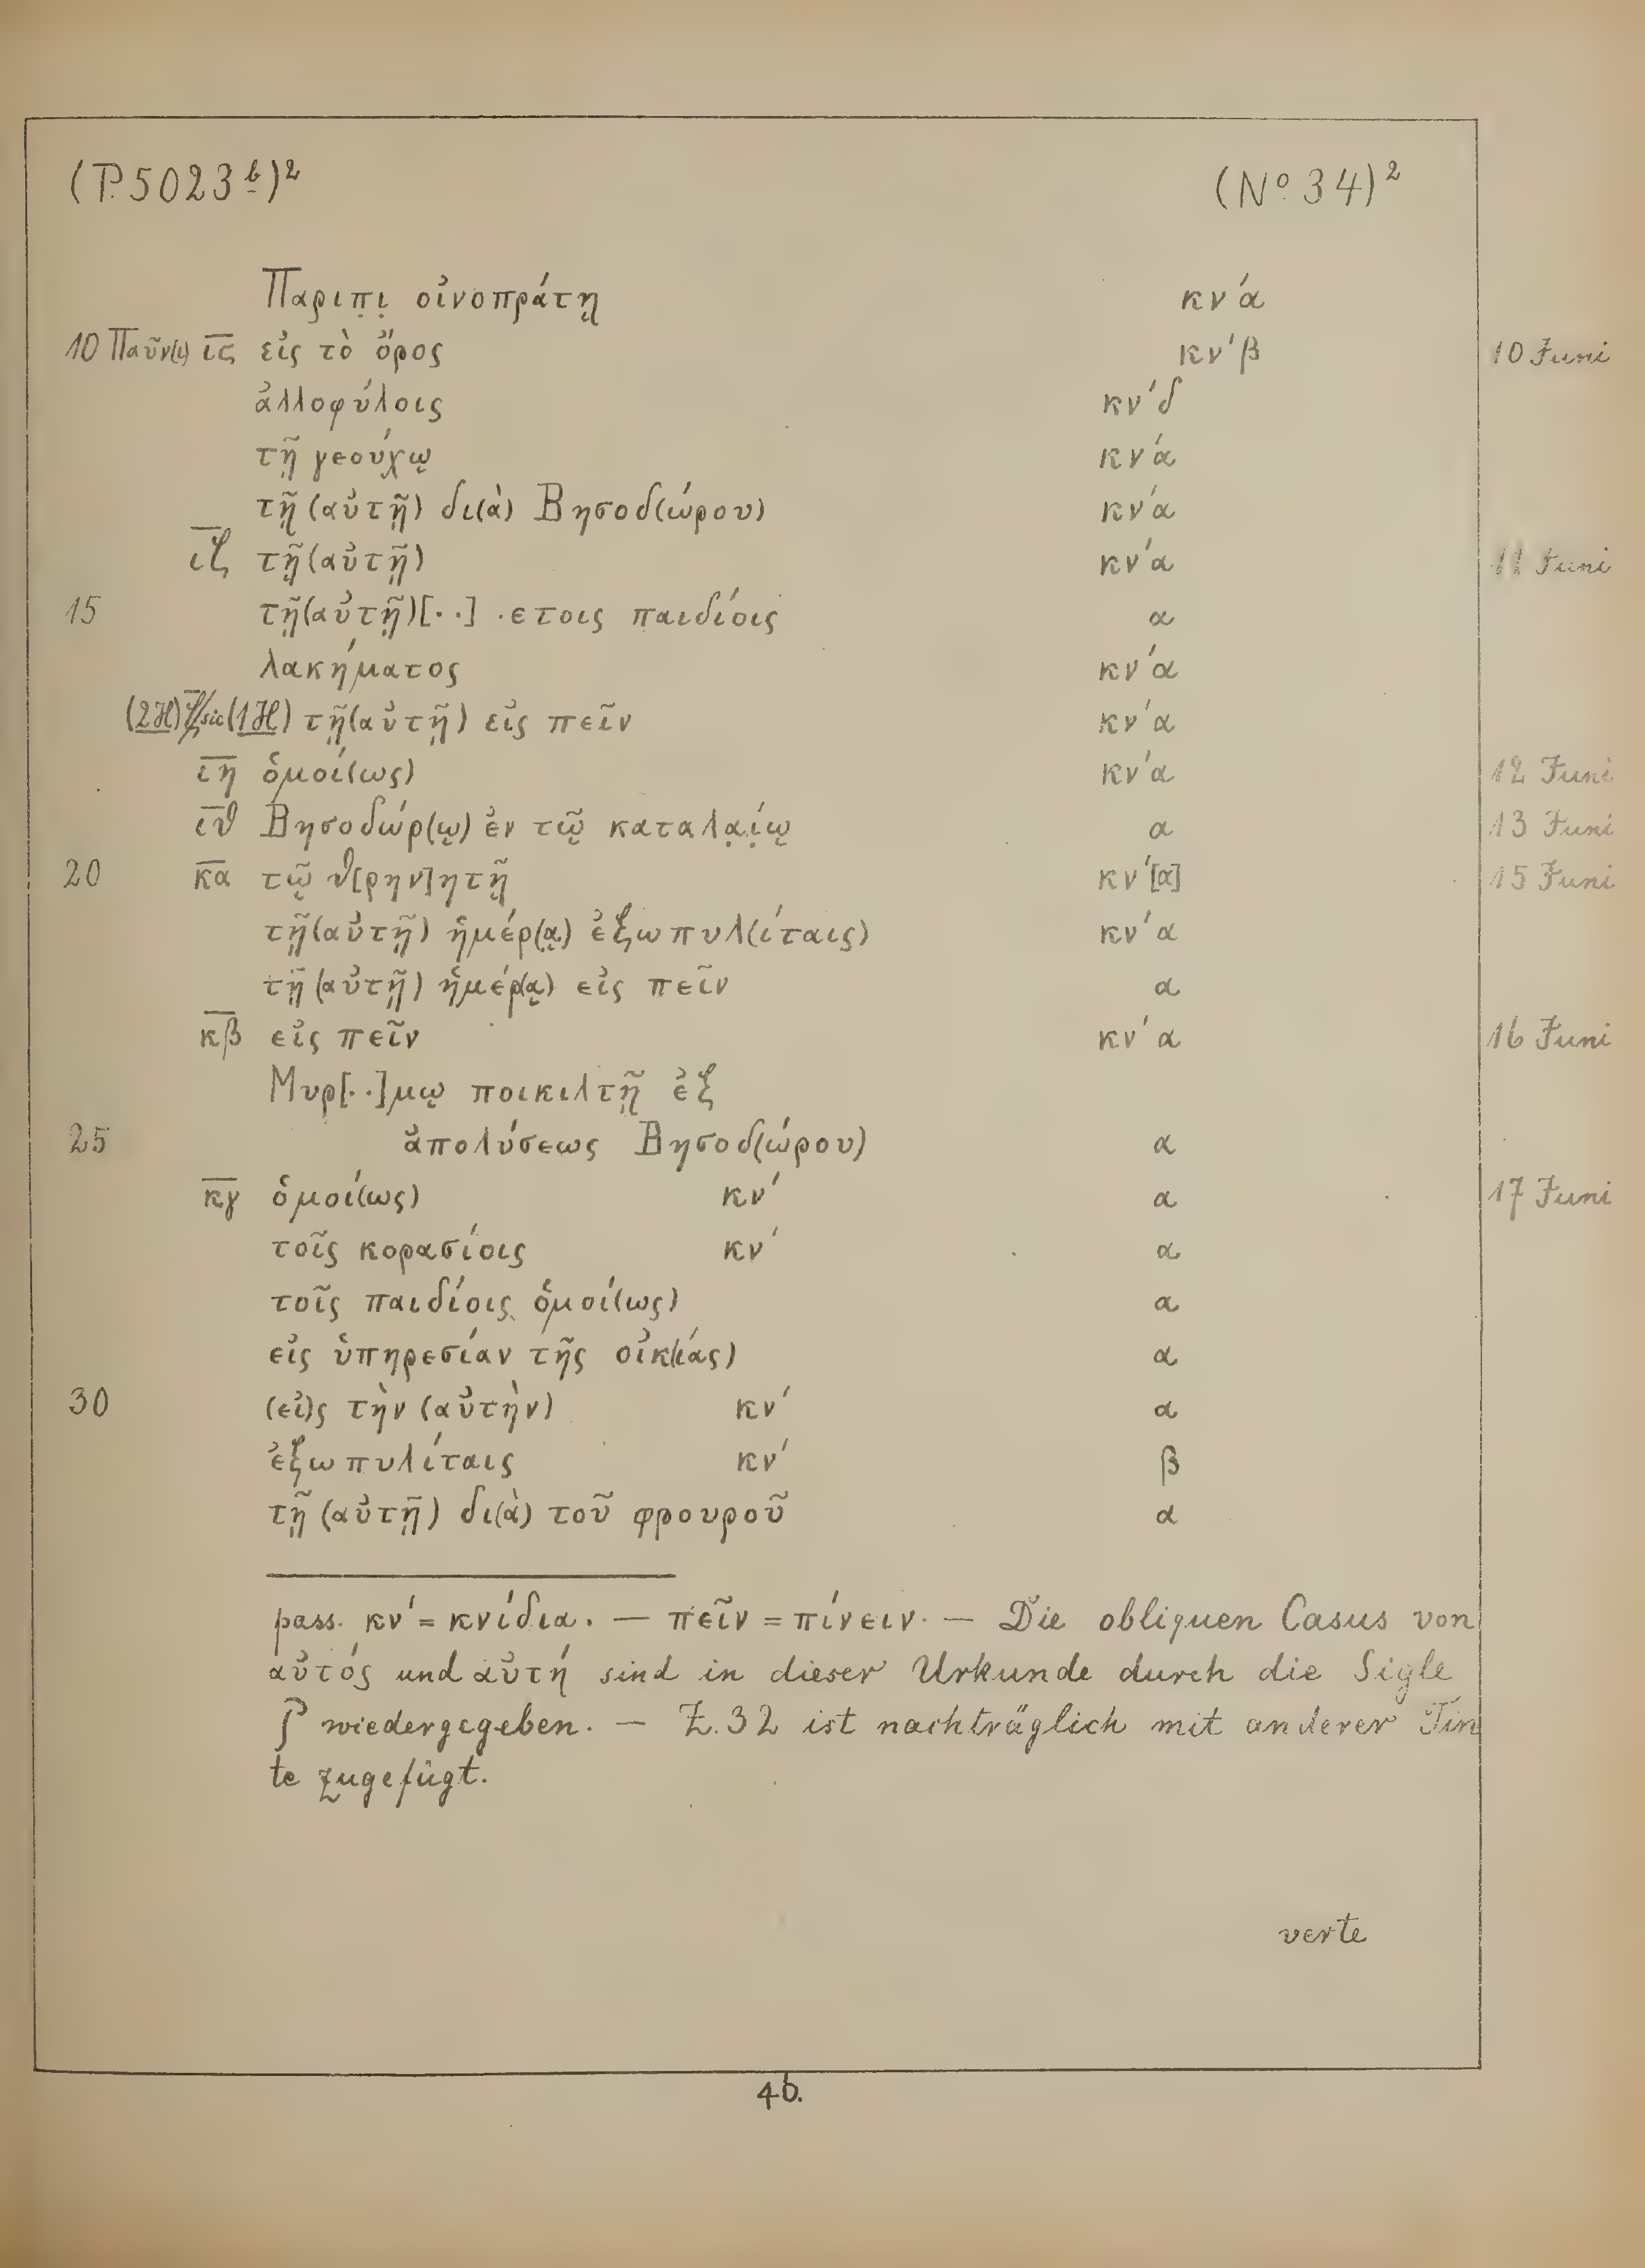 (P. 5023 b)² (Nº 34)²
Παριπ̣ι̣ οἰνοπράτῃ κν´α
10 Παῦν(ι) ιϛ εἰς τὸ ὄρος κν´β 10 Juni
ἀλλοφύλοις κν´δ
τῇ γεούχῳ κν´α
τῇ (αὐτῇ) δι(ὰ) Βησοδ(ώρου) κν´α
ιζ τῇ (αὐτῇ) κν´α 11 Juni
15 τῇ (αὐτῇ) [··] ·ετοις παιδίοις α
λακήματος κν´α
(2H) ζ sic (1H) τῇ (αὐτῇ) εἰς πεῖν κν´α
ιη ὁμοί(ως) κν´α 12 Juni
ιθ Βησοδώρ(ῳ) ἐν τῷ καταλα̣ί̣ῳ α 13 Juni
20 κα τῷ θ[ρην]ητῇ κν´[α] 15 Juni
τῇ (αὐτῇ) ἡμέρ(ᾳ) ἐξωπυλ(ίταις) κν´α
τῇ (αὐτῇ) ἡμέρ(ᾳ) εἰς πεῖν α
κβ εἰς πεῖν κν´α 16 Juni
Μυρ[··]μῳ ποικιλτῇ ἐξ
25 ἀπολύσεως Βησοδ(ώρου) α
κγ ὁμοί(ως) κν´ α 17 Juni
τοῖς κορασίοις κν´ α
τοῖς παιδίοις ὁμοί(ως) α
εἰς ὑπηρεσίαν τῆς οἰκ(ίας) α
30 (εἰ)ς τὴν (αὐτὴν) κν´ α
ἐξωπυλίταις κν´ β
τῇ (αὐτῇ) δι(ὰ) τοῦ φρουροῦ α
pass. κν´ = κνίδια. — πεῖν = πίνειν. — Die obliquen Casus von
αὐτός und αὐτή sind in dieser Urkunde durch die Sigle
wiedergegeben. — Z. 32 ist nachträglich mit anderer Tin
te zugefügt.
verte
46.